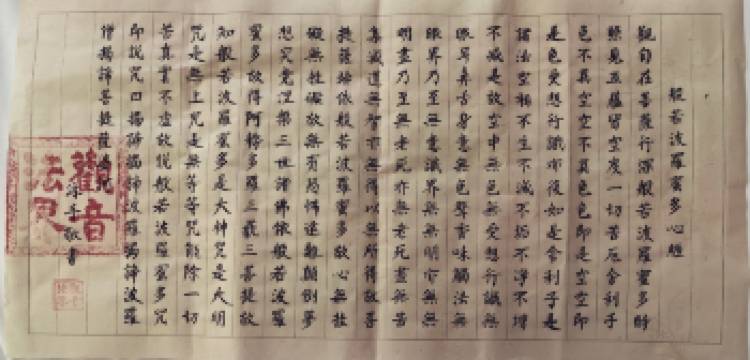 般若波羅蜜多心經
觀自在菩薩行深般若波羅蜜多時
照見五蘊皆空度一切苦厄舍利子
色不異空空不異色色即是空空即
是色受想行識亦復如是舍利子是
諸法空相不生不滅不垢不淨不增
不減是故空中無色無受想行識無
眼耳鼻舌身意無色聲香味觸法無
眼界乃至無意識界無無明亦無無
明盡乃至無老死亦無老死盡無苦
集滅道無智亦無得以無所得故菩
提薩埵依般若波羅蜜多故心無挂
礙無挂礙故無有恐怖遠離顛倒夢
想究竟涅槃三世諸佛依般若波羅
蜜多故得阿耨多羅三藐三菩提故
知般若波羅蜜多是大神咒是大明
咒是無上咒是無等等咒能除一切
苦真實不虛故說般若波羅蜜多咒
即說咒曰揭諦揭諦波羅揭諦波羅
僧揭諦菩提薩婆訶
敬書
觀音
法界